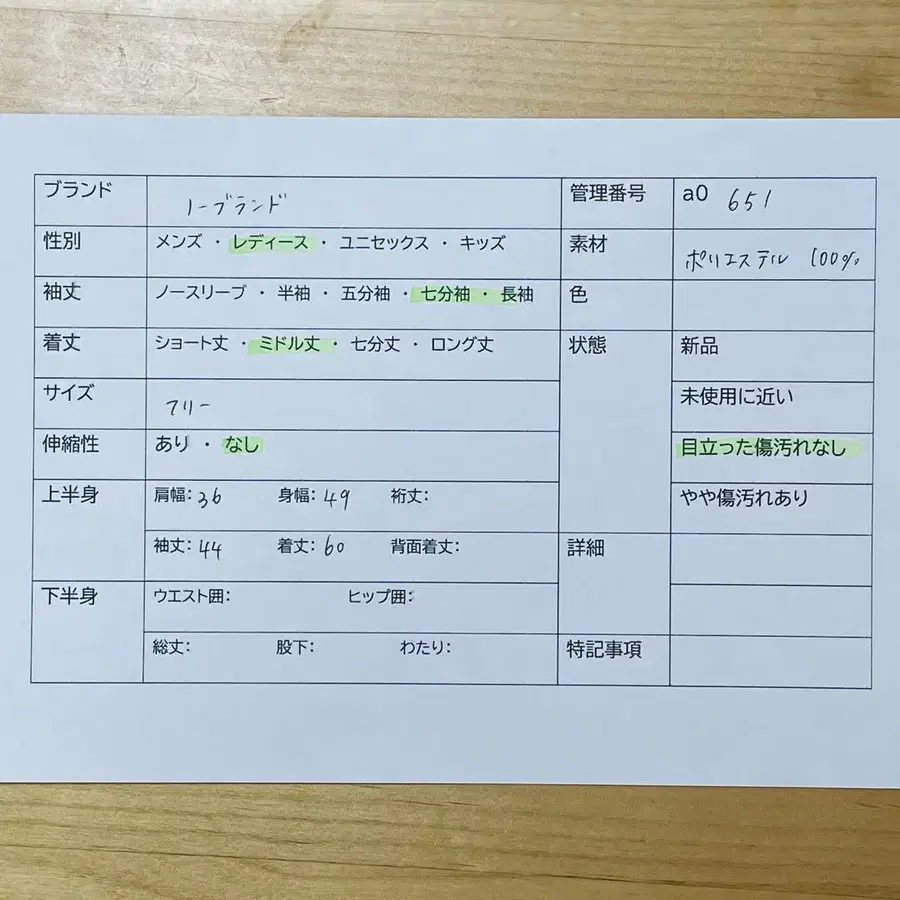 ブランド ノーブランド 管理番号 a0 651
性別 メンズ ・ レディース ・ ユニセックス ・ キッズ 素材 ポリエステル 100%
袖丈 ノースリーブ ・ 半袖 ・ 五分袖 ・ 七分袖 ・ 長袖 色
着丈 ショート丈 ・ ミドル丈 ・ 七分丈 ・ ロング丈 状態 新品
サイズ フリー 未使用に近い
伸縮性 あり ・ なし 目立った傷汚れなし
上半身 肩幅: 36 身幅: 49 裄丈: やや傷汚れあり
袖丈: 44 着丈: 60 背面着丈: 詳細
下半身 ウエスト囲: ヒップ囲:
総丈: 股下: わたり: 特記事項